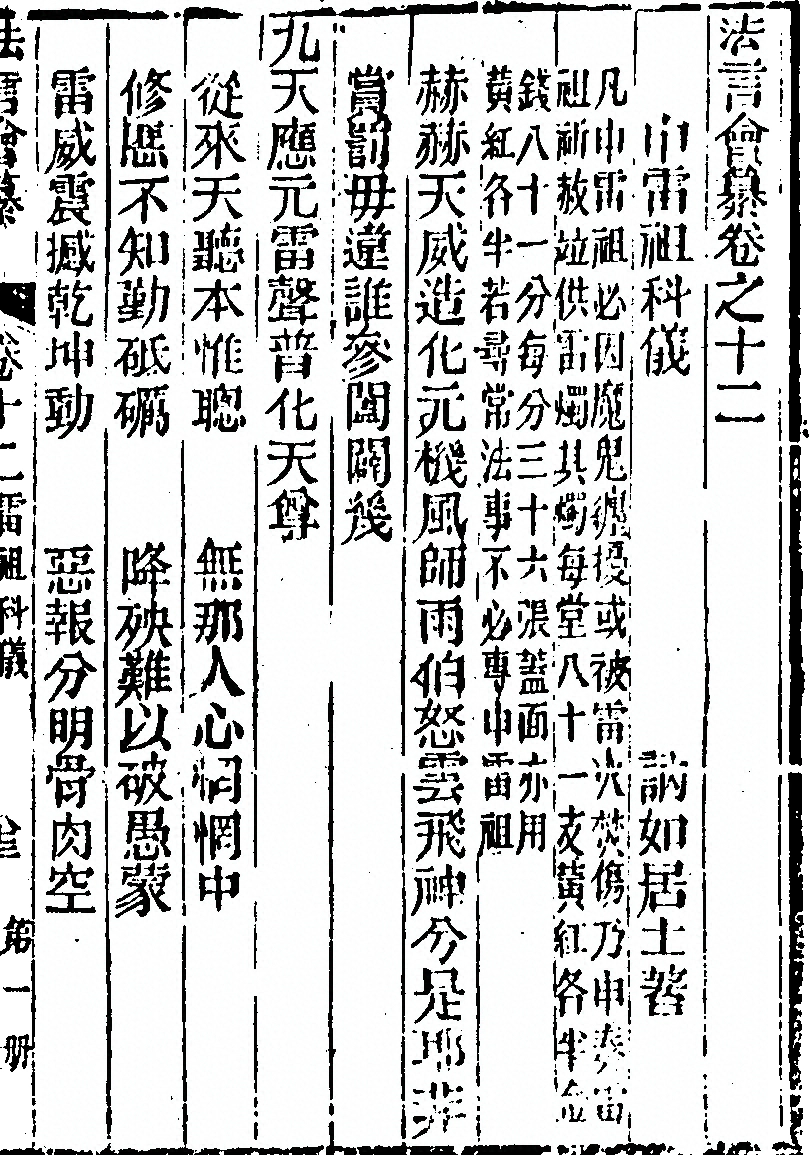 法言會纂卷之十二
申雷祖科儀 訥如居士著
凡申雷祖必因魔鬼纏擾或被雷火焚傷乃申奏雷
祖祈赦竝供雷燭其燭每堂八十一支黃紅各半金
錢八十一分每分三十六張蓋面亦用
黃紅各半若尋常法事不必專申雷祖
赫赫天威造化元機風師雨伯怒雲飛神分是耶非
賞罰毋違誰參闔闢幾
九天應元雷聲普化天尊
從來天聽本惟聰 無那人心惘惘中
修慝不知勤砥礪 降殃難以破愚蒙
雷威震撼乾坤動 惡報分明骨肉空
法言會纂 卷十二雷祖科儀 第一册